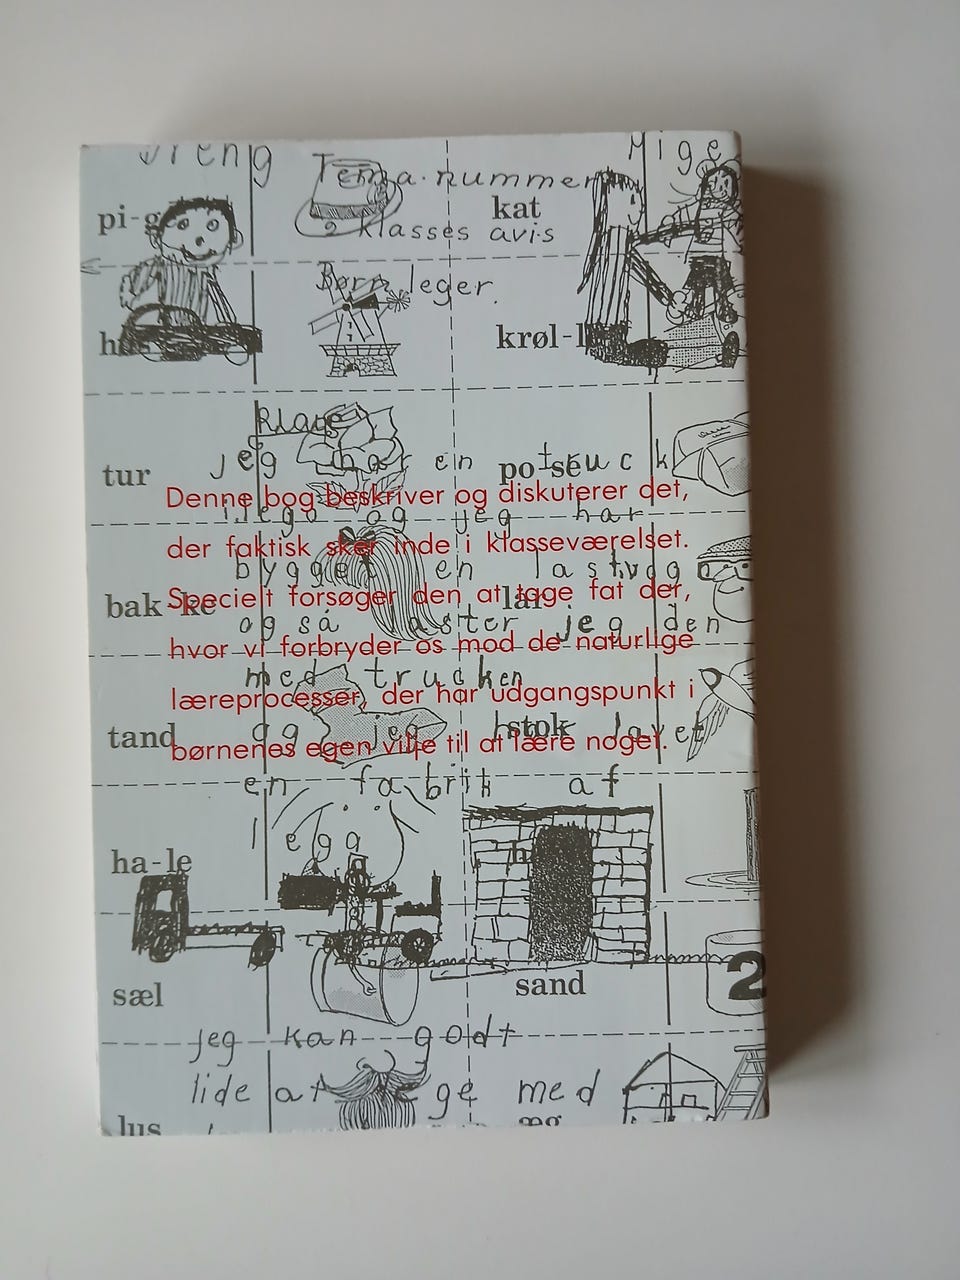 Dreng
Pige
Tema-nummer
pi-ge
kat
2 klasses avis
Børn leger.
krøl-l
Klage
jeg har en truck
tur
po se
Denne bog beskriver og diskuterer det,
i lego og jeg har
der faktisk sker inde i klasseværelset.
bygget en lastvogn
Specielt forsøger den at tage fat der,
bak-ke
også laster jeg den
hvor vi forbryder os mod de naturlige
med trucken
læreprocesser, der har udgangspunkt i
og jeg lavet
tand
stok
børnenes egen vilje til at lære noget.
en fabrik af
lego
ha-le
2
sæl
sand
jeg kan godt
lide at lege med
lus
æg